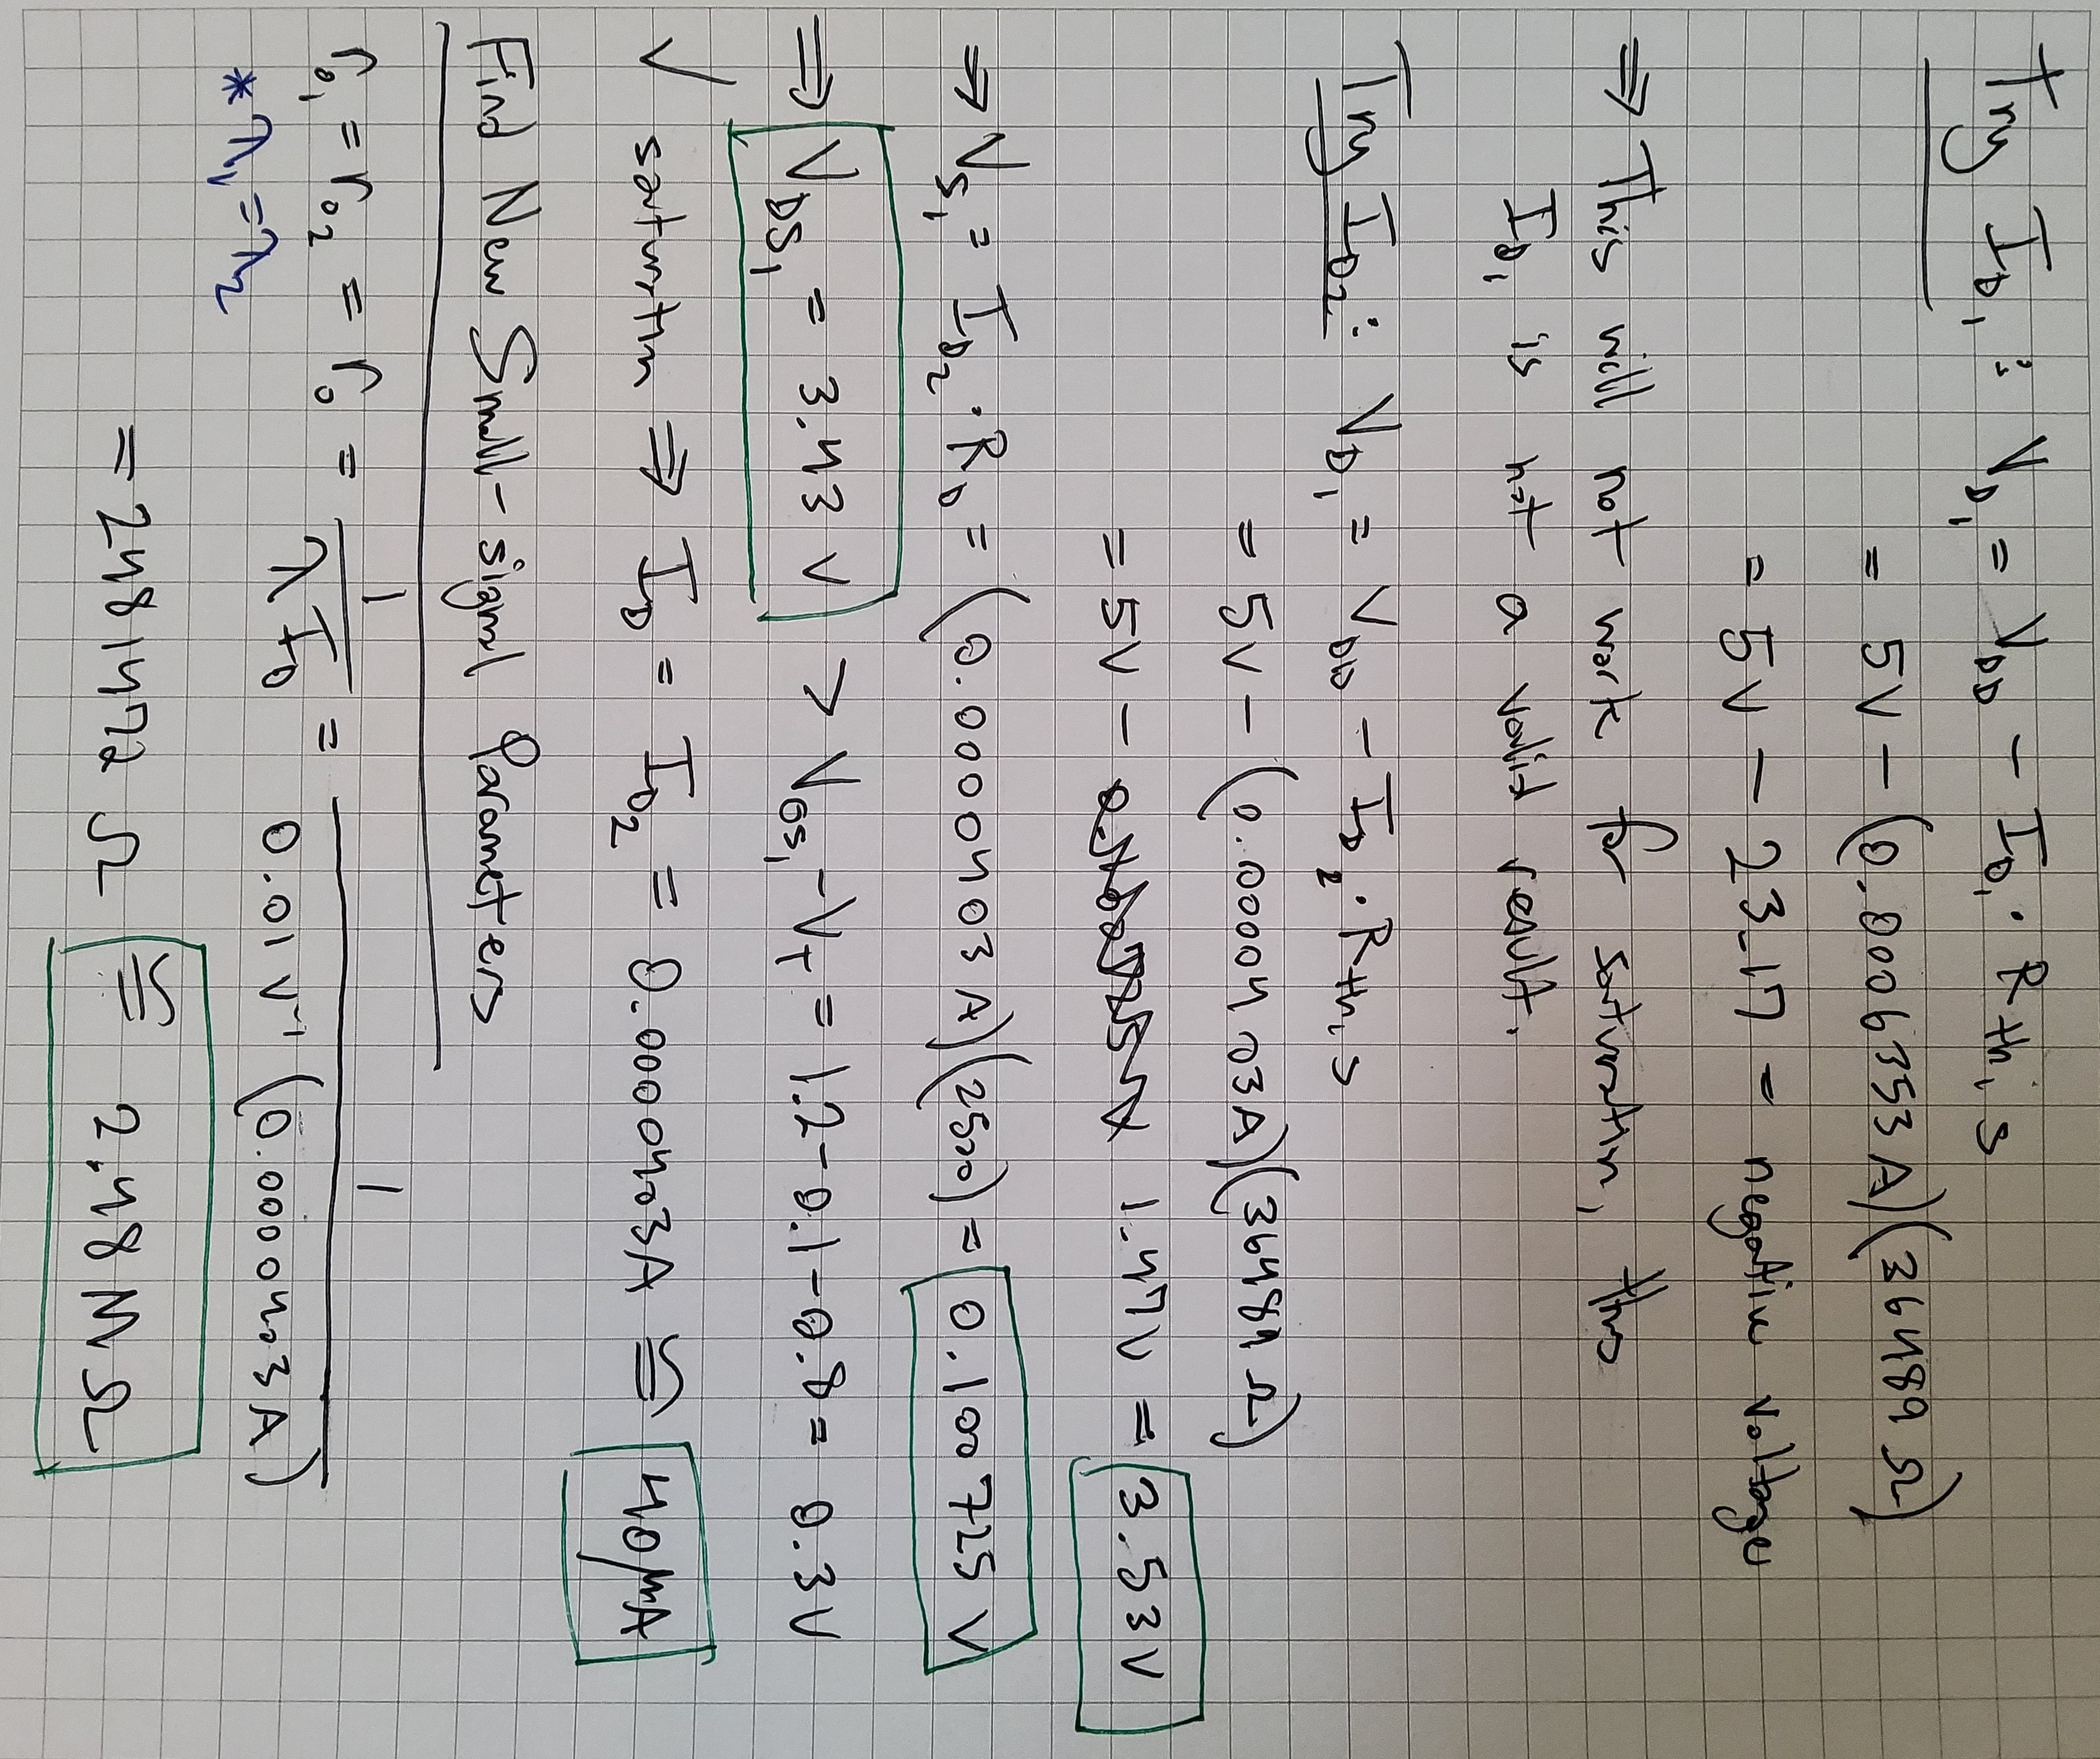 Try I_D1 : V_D1 = V_DD - I_D1 · R_th,s
= 5V - (0.0006353 A)(36489 Ω)
= 5V - 23.17 = negative voltage
⇒ This will not work for saturation, thus
I_D1 is not a valid result.
Try I_D2 : V_D1 = V_DD - I_D2 · R_th,s
= 5V - (0.0000403A)(36489 Ω)
= 5V - 1.47V = 3.53V
⇒ V_S1 = I_D2 · R_D = (0.0000403 A)(2500) = 0.100725 V
⇒ V_DS1 = 3.43 V > V_GS1 - V_T = 1.2-0.1-0.8 = 0.3V
✓ saturation ⇒ I_D = I_D2 = 0.0000403A ≅ 40μA
Find New Small-signal Parameters
r_o1 = r_o2 = r_o = 1/(λ I_D) = 1/(0.01 V⁻¹ (0.0000403 A))
* λ_1 = λ_2
= 2481472 Ω ≅ 2.48 MΩ